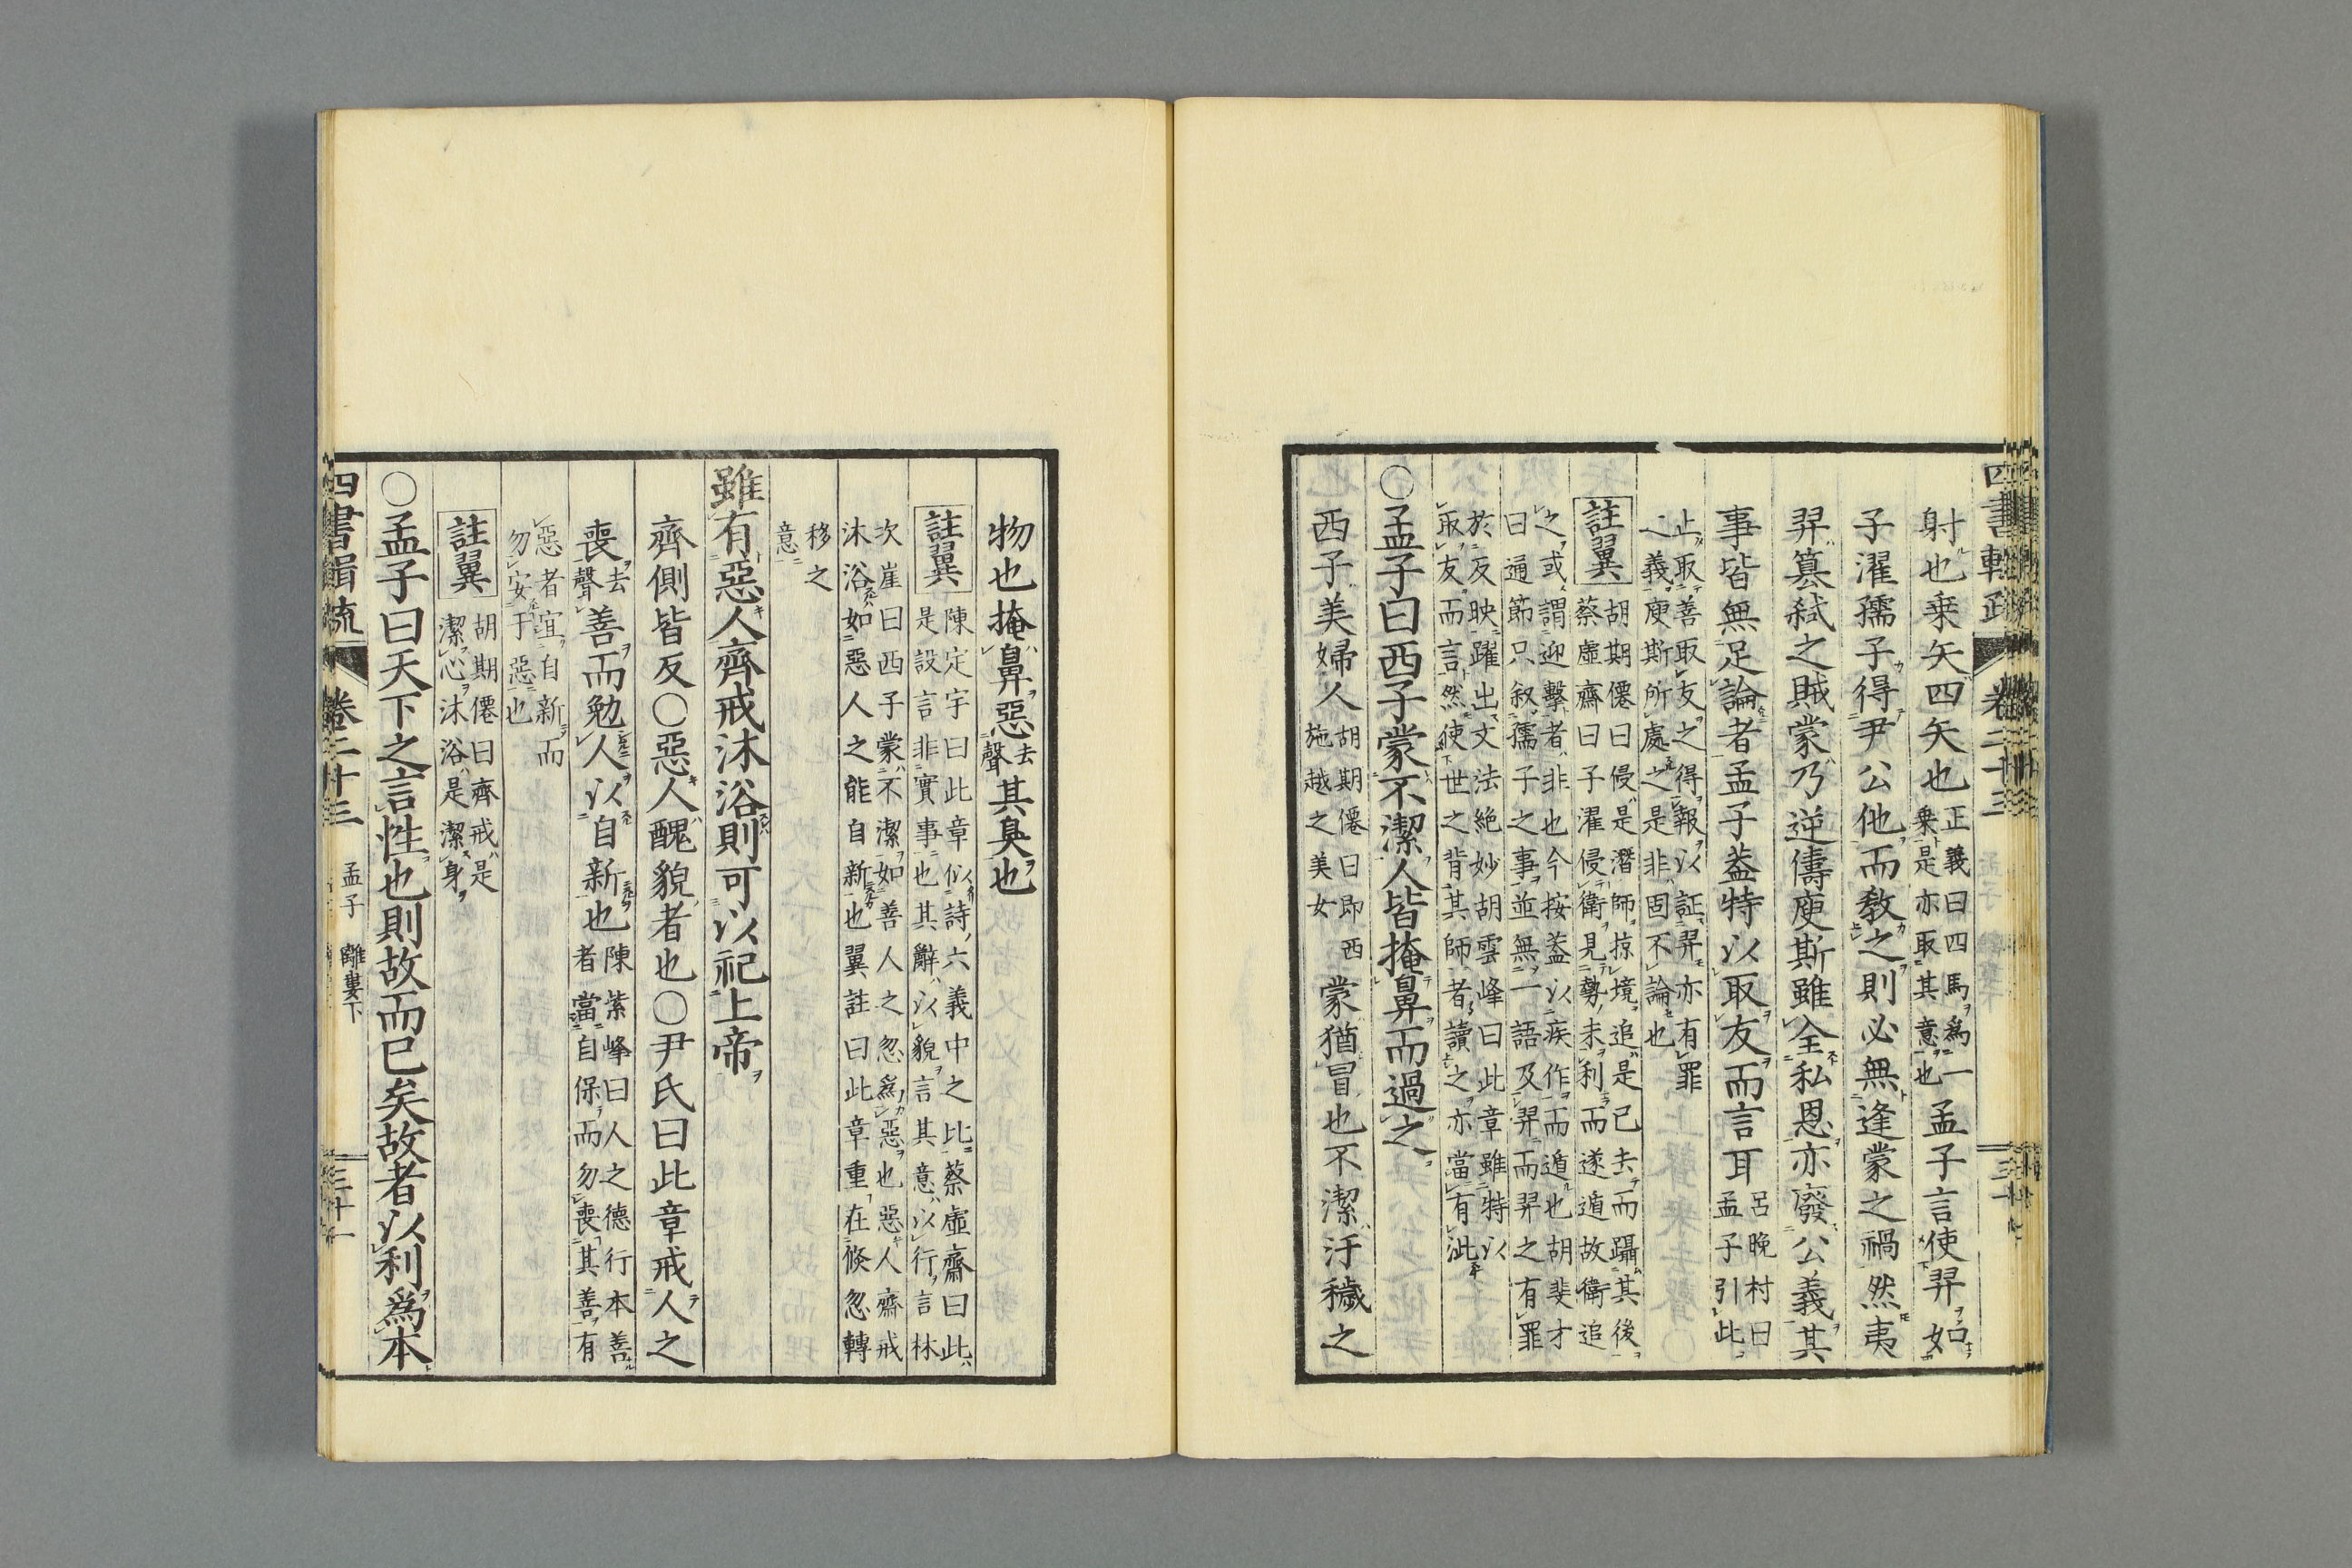 四書輯疏 卷二十三 三十
射也乗矢四矢也正義曰四馬爲一
乗是亦取其意也孟子言使羿如
子濯孺子得尹公他而教之則必無逢蒙之禍然夷
羿簒弑之賊蒙乃逆儔庾斯雖全私恩亦廢公義其
事皆無足論者孟子葢特以取友而言耳呂晚村曰
孟子引此
止取善取友之得報以証羿亦有罪
之義庾斯所處之是非固不論也
註翼
胡期僊曰侵是潛師掠境追是已去而躡其後
蔡虛齋曰子濯侵衛見勢未利而遂遁故衛追
之或謂迎擊者非也今按葢以疾作而遁也胡斐才
曰通節只叙孺子之事並無一語及羿而羿之有罪
於反映躍出文法絶妙胡雲峰曰此章雖特以
取友而言然使世之背其師者讀之亦當有泚
○孟子曰西子蒙不潔人皆掩鼻而過之
西子美婦人胡期僊曰即西
施越之美女蒙猶冒也不潔汙穢之
物也掩鼻惡去
聲其臭也
註翼
陳定宇曰此章似詩六義中之比蔡虛齋曰此
是設言非實事也其辭以貌言其意以行言林
次崖曰西子蒙不潔如善人之忽爲惡也惡人齋戒
沐浴如惡人之能自新也翼註曰此章重在倏忽轉
移之
意
雖有惡人齊戒沐浴則可以祀上帝
齊側皆反○惡人醜貌者也○尹氏曰此章戒人之
喪去
聲善而勉人以自新也陳紫峰曰人之德行本善
者當自保而勿喪其善有
惡者宜自新而
勿安于惡也
註翼
胡期僊曰齊戒是
潔心沐浴是潔身
○孟子曰天下之言性也則故而已矣故者以利爲本
四書輯疏 卷二十三 孟子 離婁下 三十一